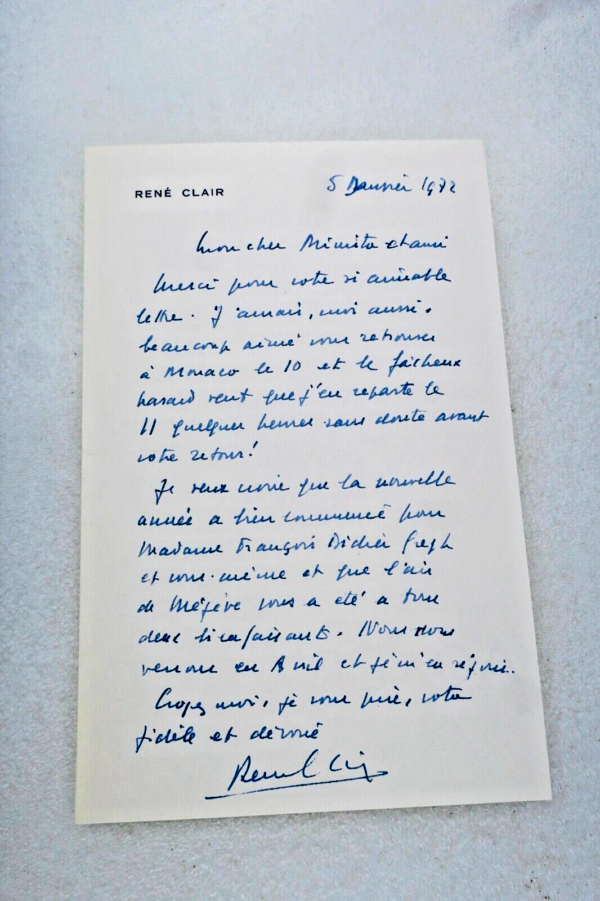 RENÉ CLAIR
5 Janvier 1972
Mon cher Ministre et ami
Merci pour votre si aimable
lettre. J'aurais, moi aussi,
beaucoup aimé vous retrouver
à Monaco le 10 et le fâcheux
hasard veut que j'en reparte le
11 quelques heures sans doute avant
votre retour!
Je veux croire que la nouvelle
année a bien commencé pour
Madame François Didier Gregh
et vous-même et que l'air
de Megève vous a été a tous
deux bienfaisants. Nous nous
verrons en Avril et je m'en réjouis.
Croyez moi, je vous prie, votre
fidèle et dévoué
René Clair